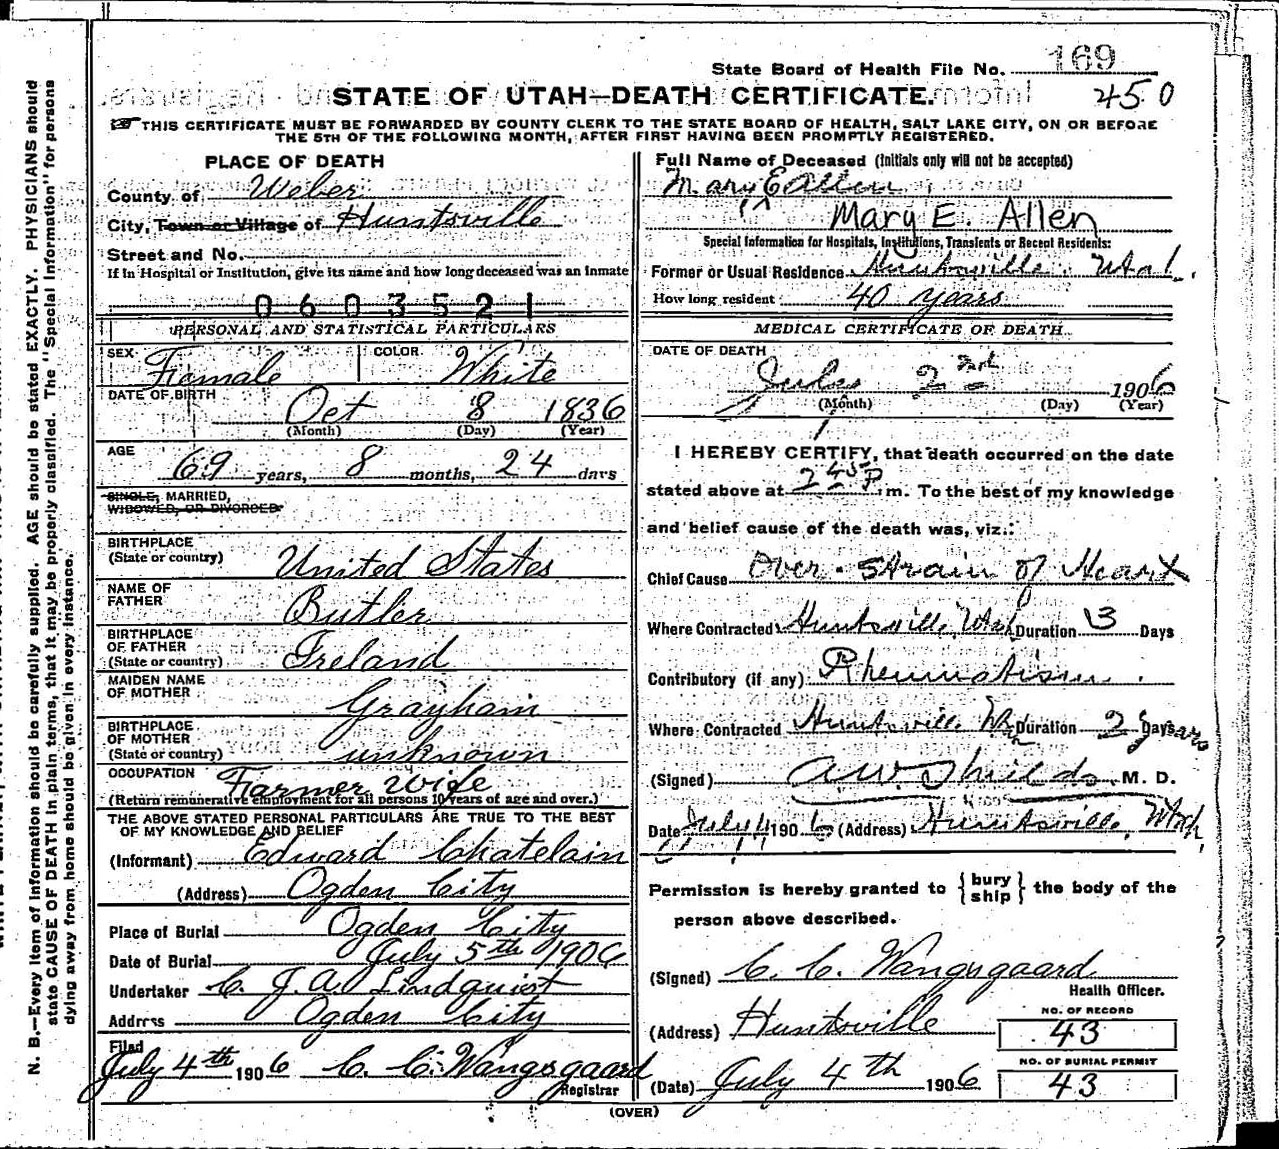 State Board of Health File No. 169
STATE OF UTAH—DEATH CERTIFICATE.
450
THIS CERTIFICATE MUST BE FORWARDED BY COUNTY CLERK TO THE STATE BOARD OF HEALTH, SALT LAKE CITY, ON OR BEFORE
THE 5TH OF THE FOLLOWING MONTH, AFTER FIRST HAVING BEEN PROMPTLY REGISTERED.
PLACE OF DEATH
County of Weber
City, Town or Village of Huntsville
Street and No.
If in Hospital or Institution, give its name and how long deceased was an inmate
0603521
PERSONAL AND STATISTICAL PARTICULARS
SEX Female COLOR White
DATE OF BIRTH Oct 8 1836
(Month) (Day) (Year)
AGE 69 years, 8 months, 24 days
SINGLE, MARRIED,
WIDOWED, OR DIVORCED
BIRTHPLACE
(State or country) United States
NAME OF
FATHER Butler
BIRTHPLACE
OF FATHER
(State or country) Ireland
MAIDEN NAME
OF MOTHER Grayham
BIRTHPLACE
OF MOTHER
(State or country) unknown
OCCUPATION Farmer wife
(Return remunerative employment for all persons 10 years of age and over.)
THE ABOVE STATED PERSONAL PARTICULARS ARE TRUE TO THE BEST
OF MY KNOWLEDGE AND BELIEF
(Informant) Edward Chatelain
(Address) Ogden City
Place of Burial Ogden City
Date of Burial July 5th 1906
Undertaker C. J. A. Lindquist
Address Ogden City
Filed
July 4th 1906 C. C. Wangsgaard
Registrar
Full Name of Deceased (Initials only will not be accepted)
Mary E Allen
Mary E. Allen
Special Information for Hospitals, Institutions, Transients or Recent Residents:
Former or Usual Residence Huntsville Utah.
How long resident 40 years
MEDICAL CERTIFICATE OF DEATH
DATE OF DEATH
July 2nd 1906
(Month) (Day) (Year)
I HEREBY CERTIFY, that death occurred on the date
stated above at 2 45 P m. To the best of my knowledge
and belief cause of the death was, viz.:
Chief Cause Over-strain of Heart
Where Contracted Huntsville, Utah Duration 13 Days
Contributory (if any) Rheumatism.
Where Contracted Huntsville Utah Duration 2 Days years
(Signed) A W Shields M. D.
Date July 4 1906 (Address) Huntsville, Utah,
Permission is hereby granted to { bury ship } the body of the
person above described.
(Signed) C. C. Wangsgaard
Health Officer.
(Address) Huntsville
NO. OF RECORD
43
NO. OF BURIAL PERMIT
(Date) July 4th 1906
43
(OVER)
N. B.—Every item of information should be carefully supplied. AGE should be stated EXACTLY. PHYSICIANS should
state CAUSE OF DEATH in plain terms, that it may be properly classified. The "Special Information" for persons
dying away from home should be given in every instance.